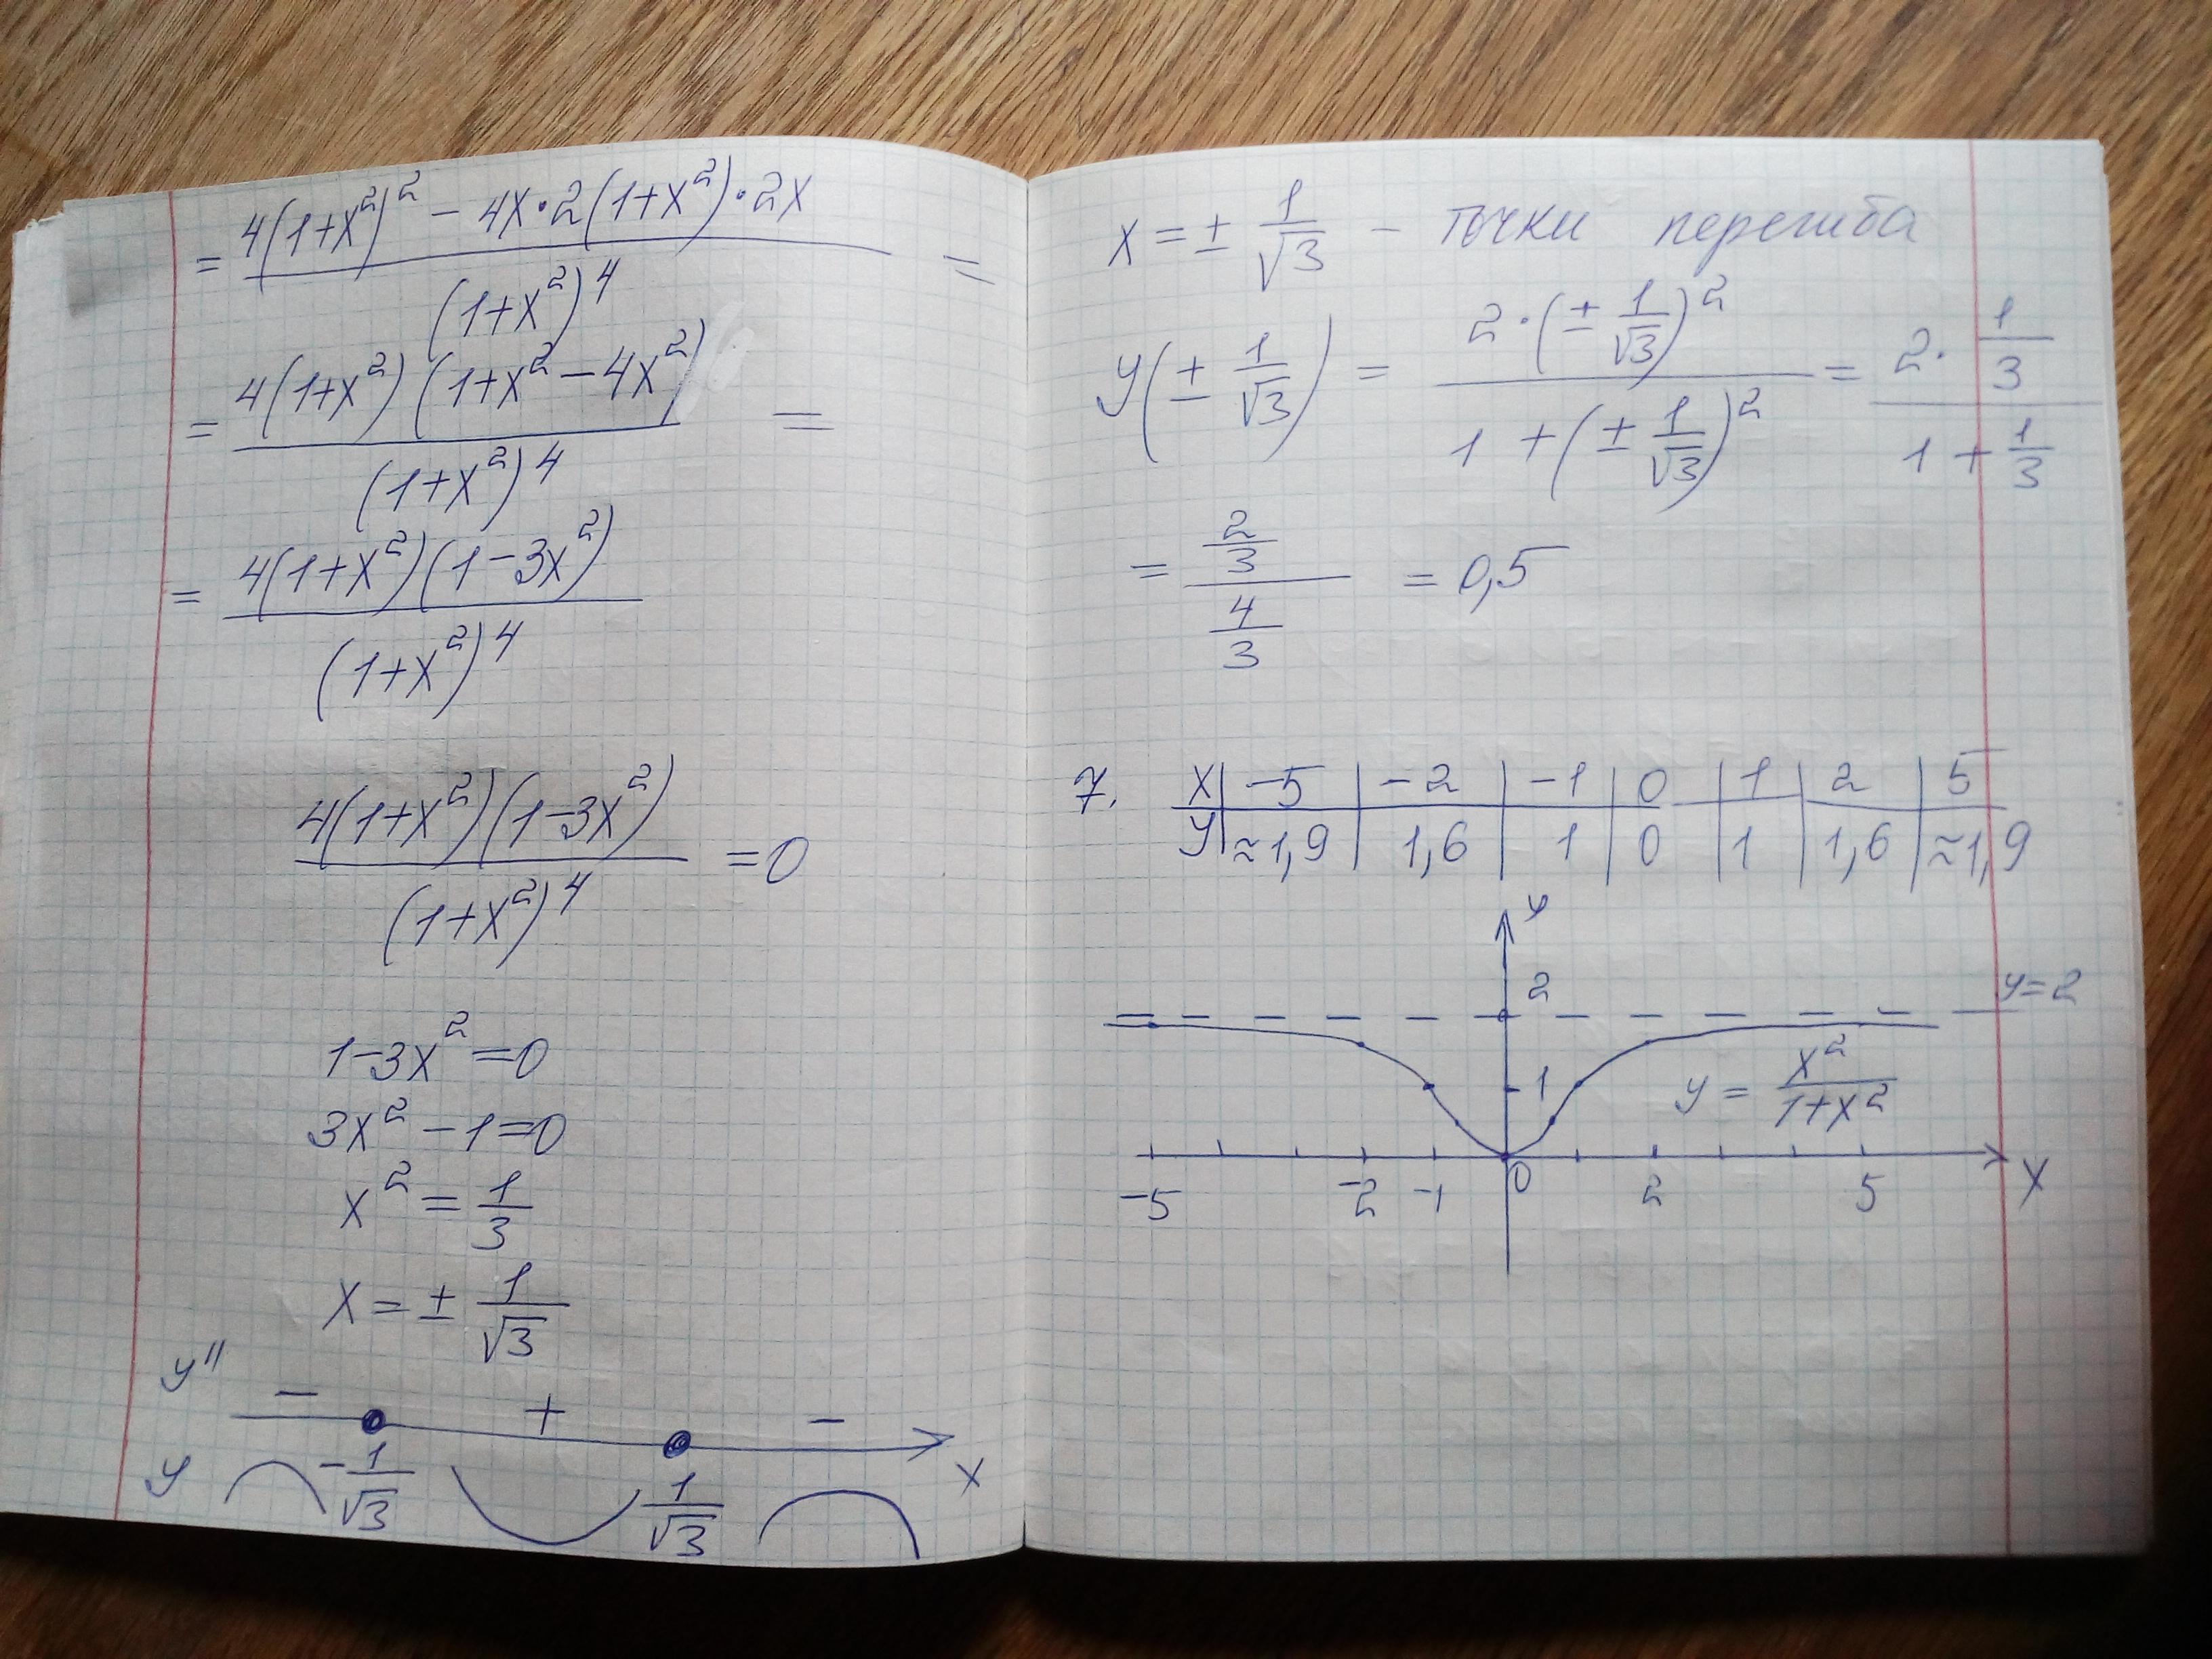 = (4(1+x²)² - 4x·2(1+x²)·2x)/((1+x²)⁴) =
= (4(1+x²)(1+x²-4x²))/((1+x²)⁴) =
= (4(1+x²)(1-3x²))/((1+x²)⁴)
(4(1+x²)(1-3x²))/((1+x²)⁴) = 0
1-3x²=0
3x²-1=0
x² = 1/3
x = ± 1/√3
y'' - + -
-1/√3 1/√3 x
y
x = ± 1/√3 - точки перегиба
y(± 1/√3) = (2·(± 1/√3)²)/(1+(± 1/√3)²) = (2·1/3)/(1+1/3)
= (2/3)/(4/3) = 0,5
7. x | -5 | -2 | -1 | 0 | 1 | 2 | 5
y | ≈1,9 | 1,6 | 1 | 0 | 1 | 1,6 | ≈1,9
y
2 y=2
1 y = x²/(1+x²)
-5 -2 -1 0 2 5 x